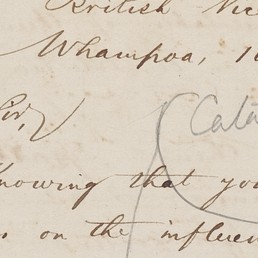 British Vic
Whampoa, 1
Sir,
Cata
Knowing that yo
on the influen